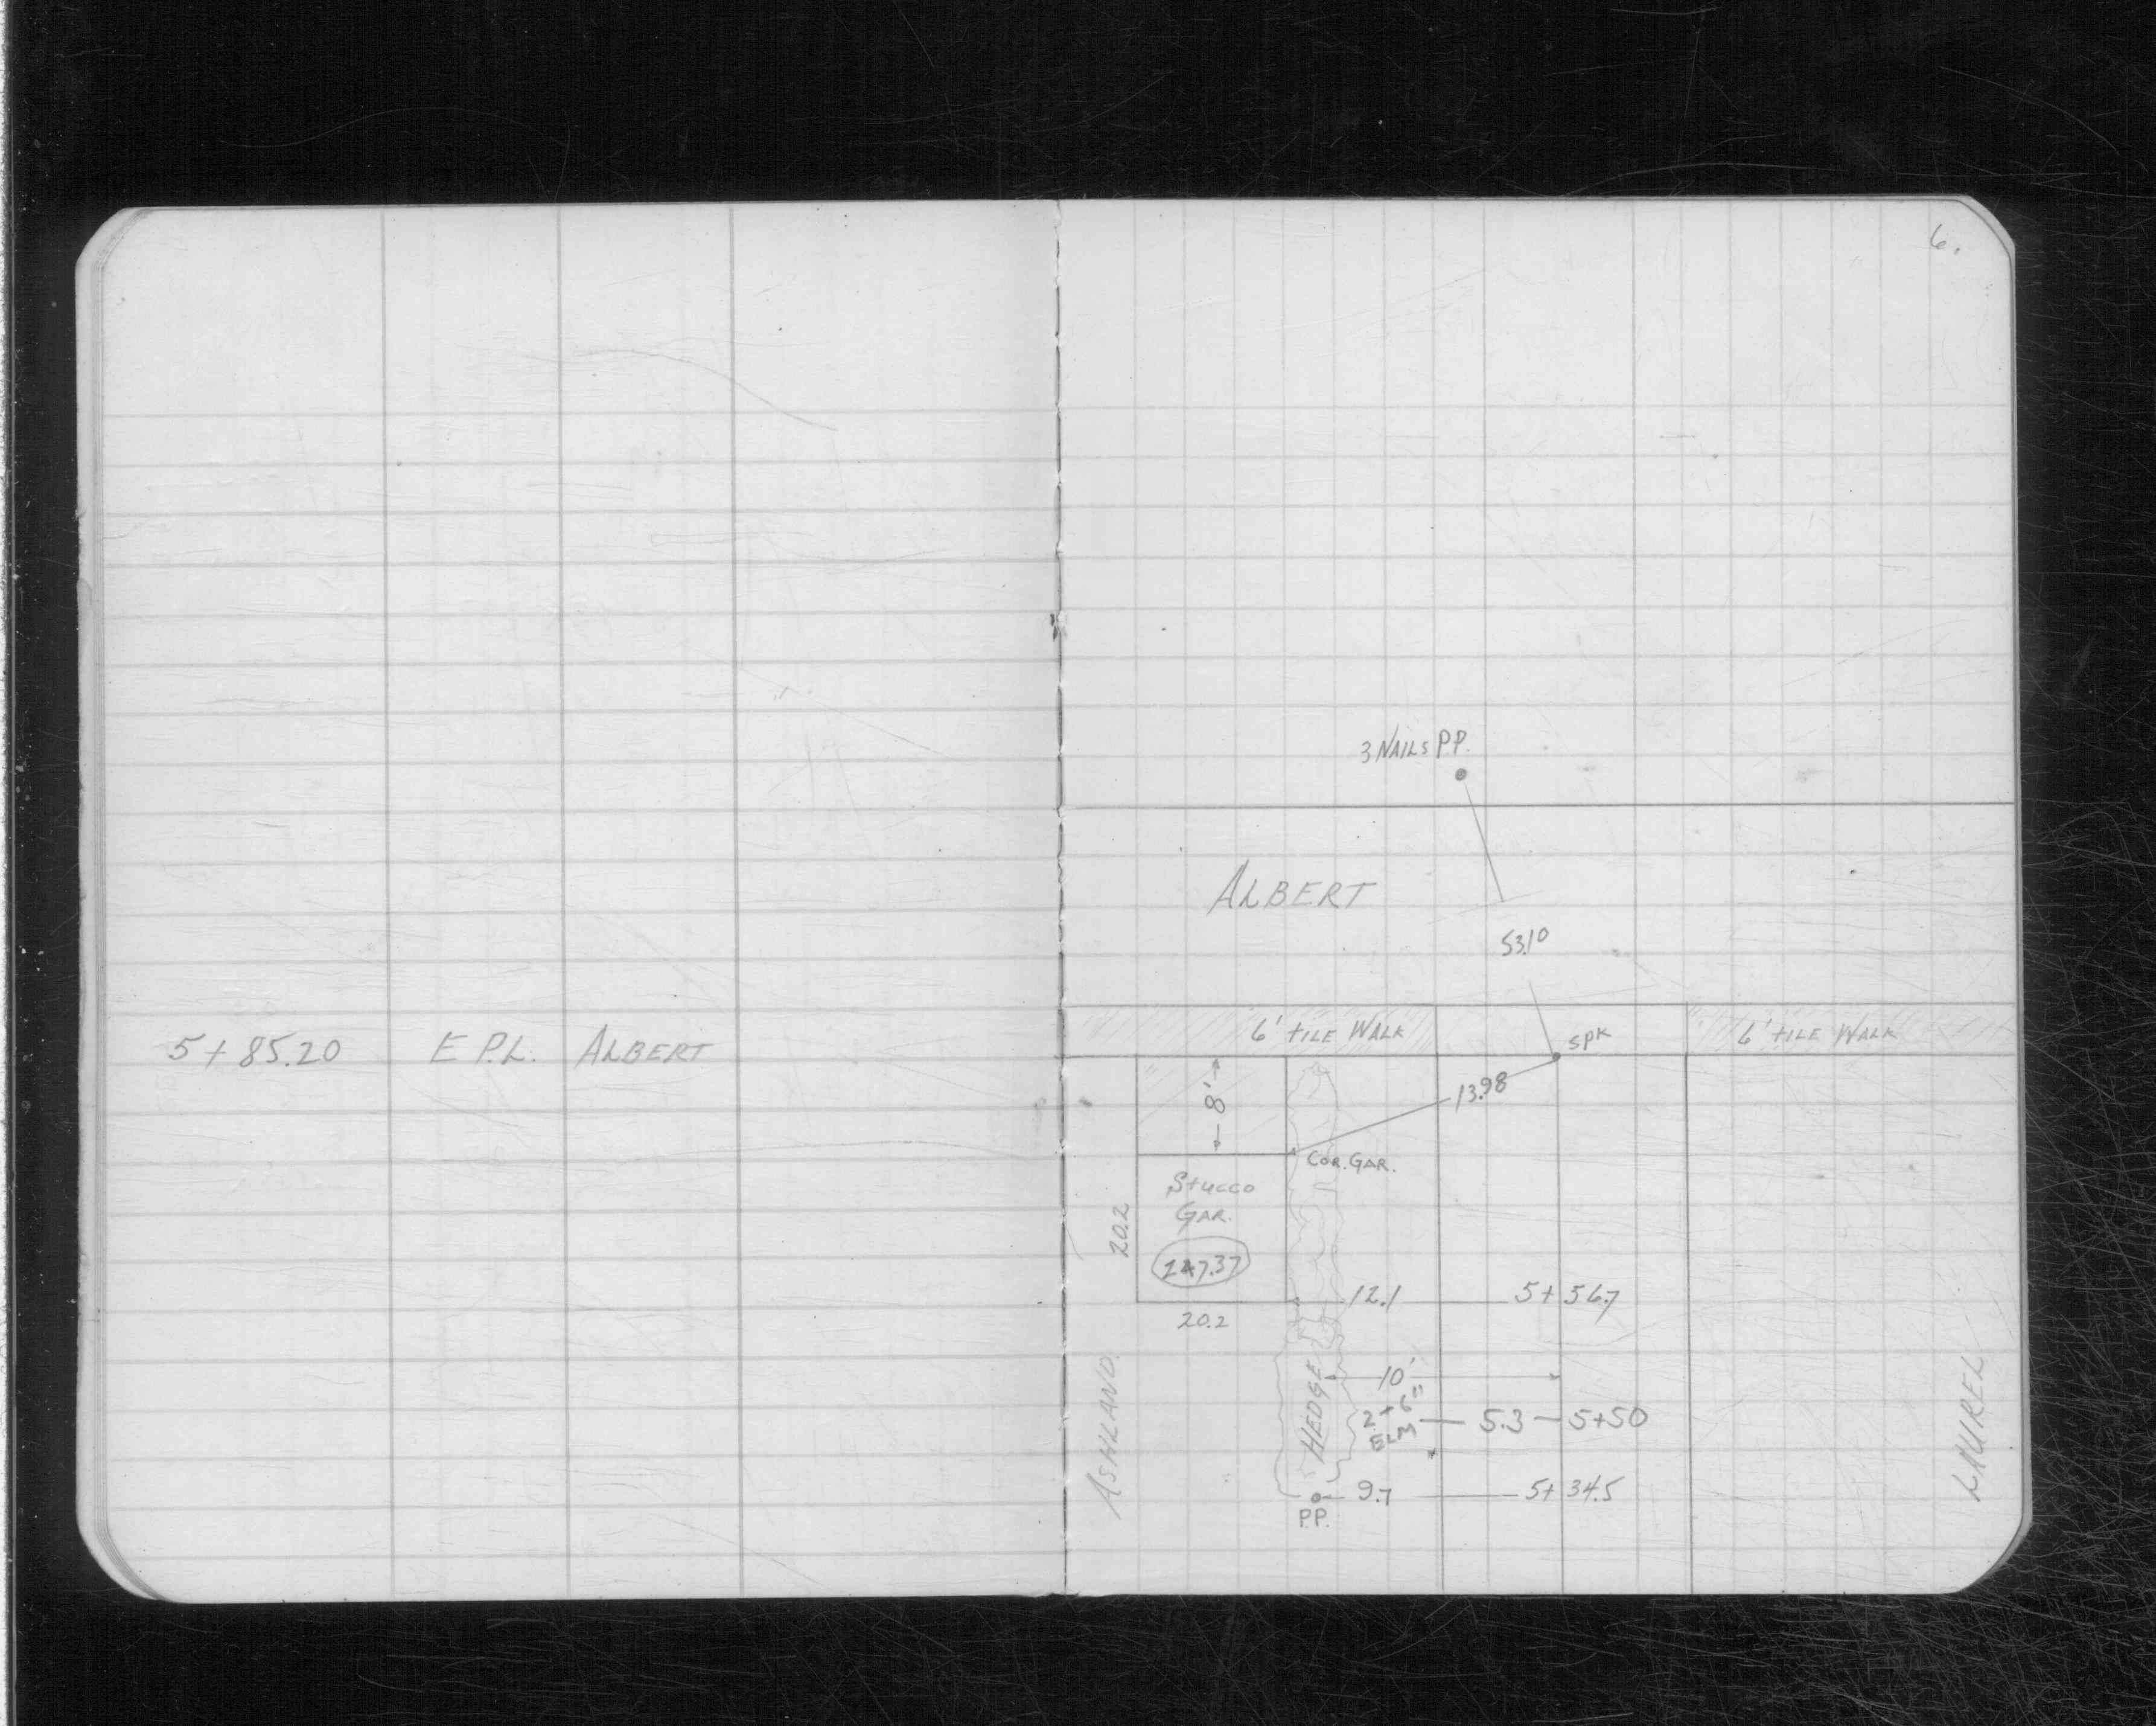 5+85.20 E P.L. ALBERT
6.
3 NAILS P.P.
ALBERT
53.10
6' TILE WALK
SPK
6' TILE WALK
8'
13.98
COR. GAR.
Stucco
GAR.
20.2
12.1 5+56.7
20.2
10'
HEDGE
2+6"
ELM
5.3 5+50
ASHLAND
LAUREL
9.7 5+34.5
P.P.